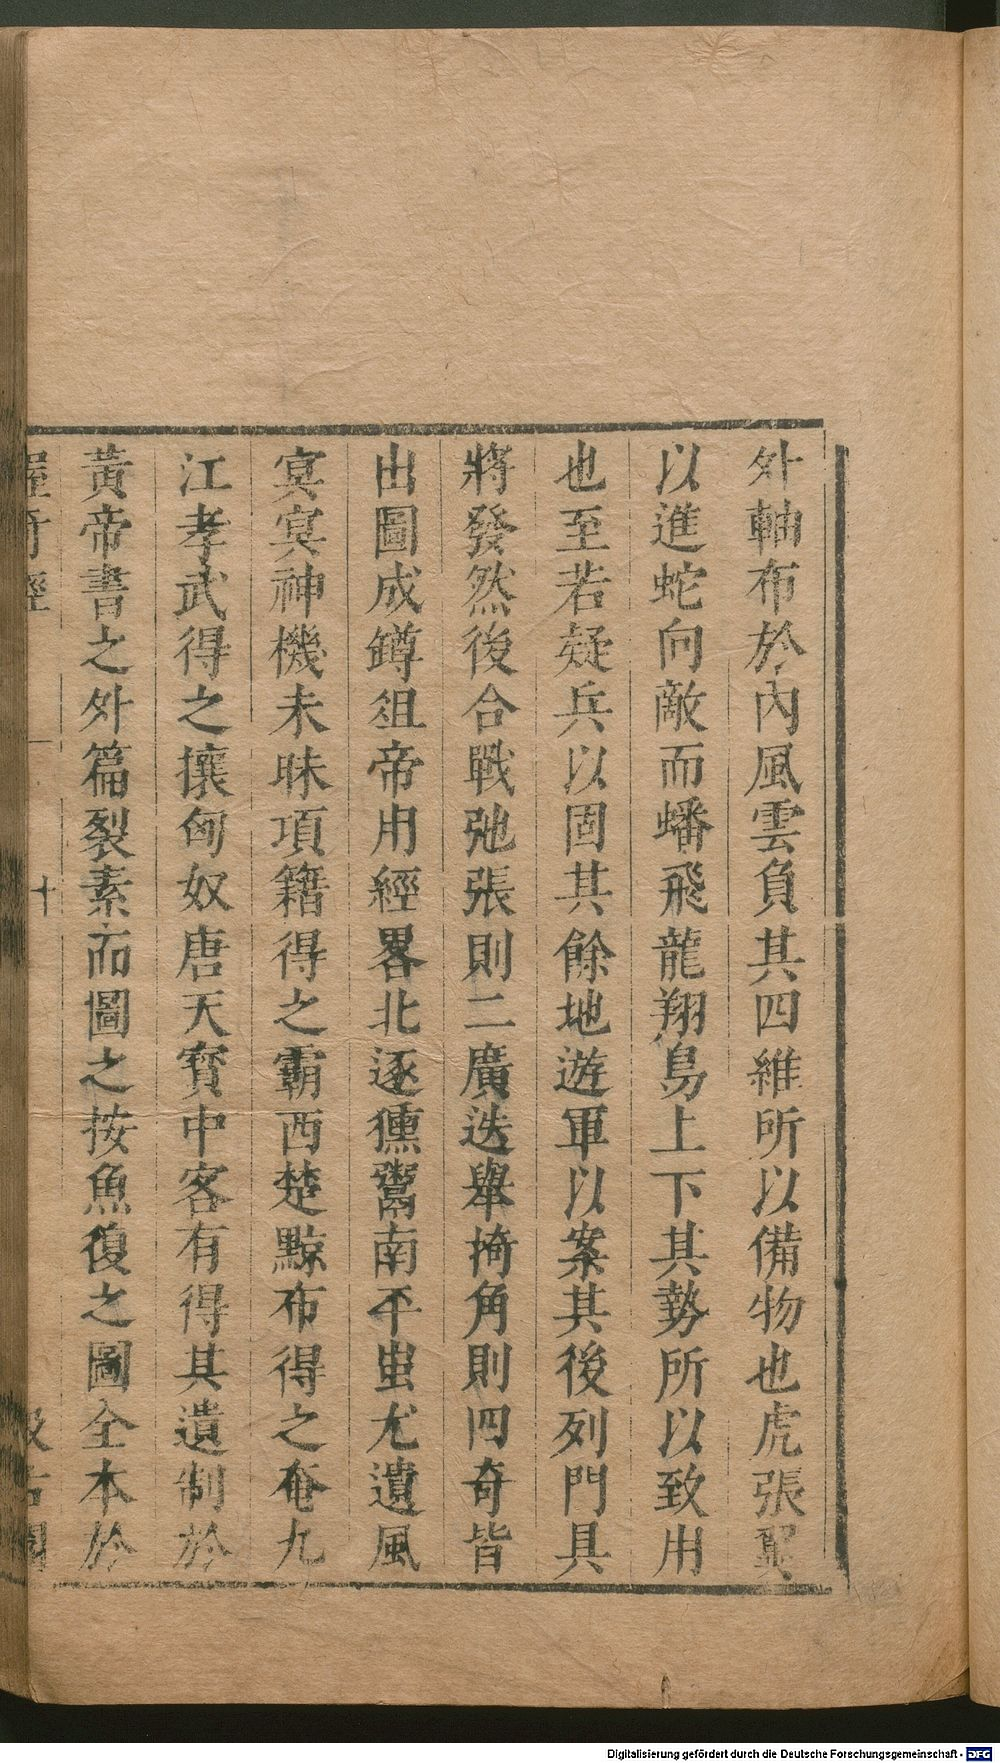 外軸布於內風雲負其四維所以備物也虎張翼
以進蛇向敵而蟠飛龍翔鳥上下其勢所以致用
也至若疑兵以固其餘地遊軍以案其後列門具
將發然後合戰弛張則二廣迭舉掎角則四奇皆
出圖成鐏俎帝用經畧北逐獯鬻南平蚩尤遺風
㝠㝠神機未昧項籍得之霸西楚黥布得之奄九
江孝武得之攘匈奴唐天寶中客有得其遺制於
黃帝書之外篇裂素而圖之按魚復之圖全本於
握奇經 十 汲古閣
Digitalisierung gefördert durch die Deutsche Forschungsgemeinschaft - DFG